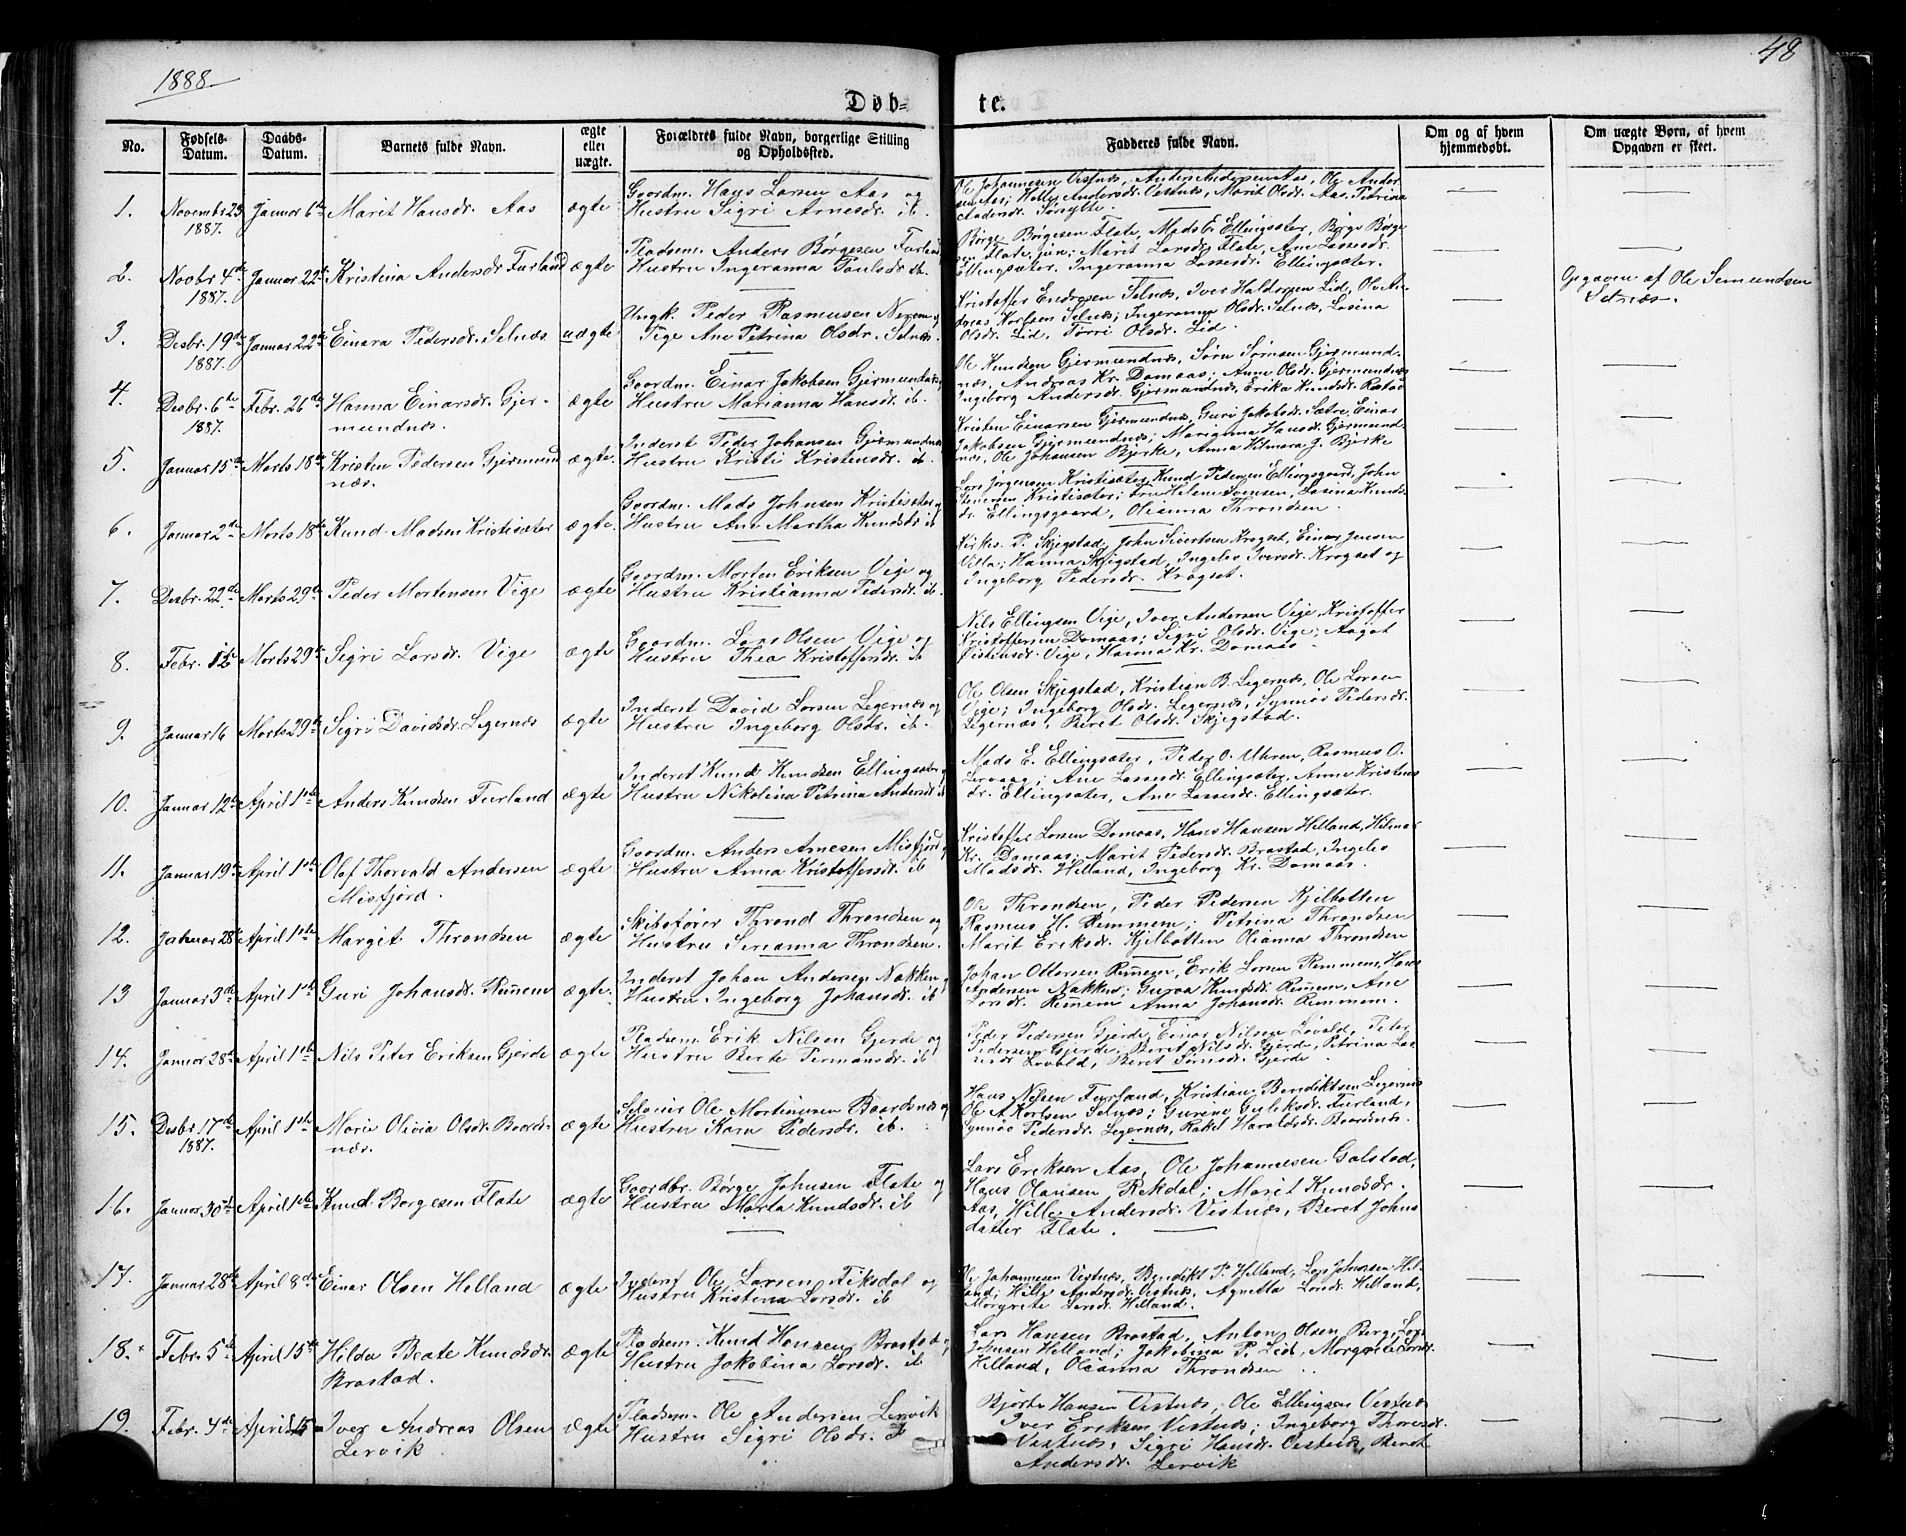 48
1888
Døb- te.
No. Fødsels-Datum. Daabs-Datum. Barnets fulde Navn. ægte eller uægte. Forældres fulde Navn, borgerlige Stilling og Opholdssted. Fadderes fulde Navn. Om og af hvem hjemmedøbt. Om uægte Børn, af hvem Opgaven er skeet.
1. Novembr 23 1887. Januar 6te Marit Hansdr. Aas ægte Gaardm. Hans Larsen Aas og
Hustru Sigri Arnesdr. ib.
Ole Johannesen Vestnæs, Anders Andersen Aas, Ole Ander-
sen Aas; Hille Andersdr. Vestnæs, Marit Olsdr. Aas, Petrina
2. Novbr 4de 1887. Januar 22de Kristina Andersdr. Furland ægte Pladsm. Anders Børgesen Furland
Hustru Ingeranna Paulsdr. ib.
Børge Børgesen Flate, Mads E. Ellingsæter, Børge Børge-
sen Flate jun.; Marit Larsdr. Flate, Ane Lassesdr.
Ellingsæter, Ingeranna Lassesdr. Ellingsæter.
3. Desbr. 19de 1887. Januar 22de Einara Pedersdr. Selnæs uægte Ungk. Peder Rasmusen
Pige Ane Petrina Olsdr. Selnæs.
Kristoffer Endresen Selnæs, Iver Haldorsen Lid, Ole An-
dreas Karlsen Selnæs; Ingeranna Olsdr. Selnæs, Lasina
Olsdr. Lid, Olsdr. Lid.
Opgaven af Ole Semundsen
Selnæs.
4. Desbr. 6te 1887. Febr. 26de Hanna Einarsdr. Gjer-
mundnæs. ægte Gaardm. Einar Jakobsen Gjermundnæs
Hustru Marianna Hansdr. ib.
Ole Knudsen Gjermundnæs, Søren Sørnsen Gjermund-
næs, Andreas Kr. Damaas; Anne Olsdr. Gjermundnæs
Ingeborg Andersdr. Gjermundnæs, Erika Knudsdr.
5. Januar 15de Marts 18de Kristen Pedersen Gjermund
næs. ægte. Inderst Peder Johansen Gjermundnæs
Hustru Kristi Kristensdr. ib.
Kristen Einarsen Gjermundnæs, Guri Jakobsdr. Sætre, Einar
Jakobsen Gjermundnæs; Marianna Hansdr. Gjermund-
næs, Ole Johansen Bjerke, Anna Hilmara J. Bjerke
6. Januar 2de Marts 18de Knud Madsen Kristisæter ægte. Gaardm. Mads Johnsen Kristisæter
Hustru Ane Martha Knudsdr. ib
Lars Jørgensen Kristisæter, Knud Pedersen Ellingsgaard, John
Kristisæter; Fru Helene Svensen, Lasina Knuds-
dr. Ellingsgaard, Olianna Throndsen.
7. Desbr. 22de Marts 29de Peder Mortensen Vige ægte Gaardm. Morten Eriksen Vige og
Hustru Kristianna Pedersdr. ib.
Kirkes. P. Skjegstad, John Sivertsen Krogset, Einar Jensen
Villa; Hanna Skjegstad, Ingeles Iversdr. Krogset og
Ingeborg Pedersdr. Krogset.
8. Febr. 15 Marts 29de Sigri Larsdr. Vige ægte Gaardm. Lars Olsen Vige og
Hustru Thea Kristoffersdr. ib
Nils Ellingsen Vige, Iver Andersen Vige, Kristoffer
Kristoffersen Damaas; Sigri Olsdr. Vige; Aagot
Øistensdr. Vige, Hanna Kr. Damaas
9. Januar 16 Marts 29de Sigri Davidsdr. Legernæs ægte Inderst David Larsen Legernæs og
Hustru Ingeborg Olsdr. ib.
Ole Olsen Skjegstad, Kristian B. Legernæs, Ole Larsen
Vige; Ingeborg Olsdr. Legernæs, Synnøv Pedersdr.
Legernæs, Beret Olsdr. Skjegstad.
10. Januar 12te April 1ste Anders Knudsen Furland ægte Inderst Knud Knudsen Ellingsæter
Hustru Nikolina Petrina Andersdr ib
Mads E. Ellingsæter, Peder O. Uhren, Rasmus O.
Lervaag; Ane Lassesdr. Ellingsæter, Anne Kristens
dr. Ellingsæter, Ane Lassesdr. Ellingsæter.
11. Januar 19de April 1ste Olaf Thorvald Andersen
Misfjord. ægte Gaardm. Anders Arnesen Misfjord
Hustru Anna Kristoffersdr. ib
Kristoffer Larsen Damaas, Hans Hansen Helland, Hilmar
Kr. Damaas; Marit Pedersdr. Brastad, Ingeles
Madsdr. Helland, Ingeborg Kr. Damaas.
12. Januar 28de April 1ste Margit Throndsen ægte Skibsfører Thrond Throndsen og
Hustru Serianna Throndsen.
Ole Throndsen, Peder Pedersen Kjelbotten
Rasmus H. Remmem; Petrina Throndsen
Marit Eriksdr. Kjelbotten Olianna Throndsen
13 Januar 3de April 1ste Guri Johansdr. Remem ægte. Inderst Johan Andersen Nakken
Hustru Ingeborg Johansdr. ib
Johan Ottersen Remem, Erik Larsen Remmem, Hans
Andersen Nakken; Guroa Knudsdr. Remem, Ane
Larsdr. Remem Anna Johansdr. Remmem.
14. Januar 28de April 1ste Nils Peter Eriksen Gjerde ægte Pladsem. Erik Nilsen Gjerde og
Hustru Berte Permansdr. ib
Peder Pedersen Gjerde, Einar Nilsen Løvold, Peter
Pedersen Gjerde; Beret Nilsdr. Gjerde, Petrina Las-
Løvold, Beret Sørnsdr. Gjerde
15. Desbr 17de 1887. April 1ste Marie Olivia Olsdr. Baards-
næs. ægte Selveier Ole Mortinusen Baardsnæs og
Hustru Karn Pedersdr. ib.
Hans Nilsen Furland, Kristian Bendiktsen Legernæs
Ole A. Karlsen Selnæs; Gurene Guleksdr. Furland,
Synnøv Pedersdr. Legernæs, Rakel Haraldsdr. Baardsnæs.
16. Januar 30te April 1ste Knud Børgesen Flate ægte Gaardbr. Børge Johnsen Flate og
Hustru Marta Knudsdr. ib
Lars Eriksen Aas, Ole Johannesen Galstad,
Hans Olausen Rekdal; Marit Knudsdr.
Aas, Hille Andersdr. Vestnæs, Beret Johns
datter Flate.
17. Januar 28de April 8de Einar Olsen Helland ægte Inderst Ole Larsen Fiksdal og
Hustru Kristina Larsdr. ib
Ole Johannesen Vestnæs, Bendikt P. Helland, Lars Johnsen Hel-
land; Hille Andersdr. Vestnæs, Agnetta Larsdr. Helland,
Margrete Larsdr. Helland.
18. Febr. 5te April 15de Hilda Beate Knudsdr.
Brastad. ægte Pladsem. Knud Hansen Brastad og
Hustru Jakobina Larsdr. ib
Lars Hansen Brastad, Anton Olsen Berg, Lars
Johnsen Helland; Jakobina P. Lid, Margrete Larsdr.
Helland, Olianna Throndsen.
19. Febr. 4de April 15 Iver Andreas Olsen
Lervik. ægte Pladsem. Ole Andersen Lervik
Hustru Sigri Olsdr.
Bjørte Hansen Vestnæs, Ole Ellingsen Vestnæs
Iver Eriksen Vestnæs; Ingeborg Thoresdr.
Vestnæs, Sigri Hansdr. Vestnæs, Beret
Andersdr. Lervik